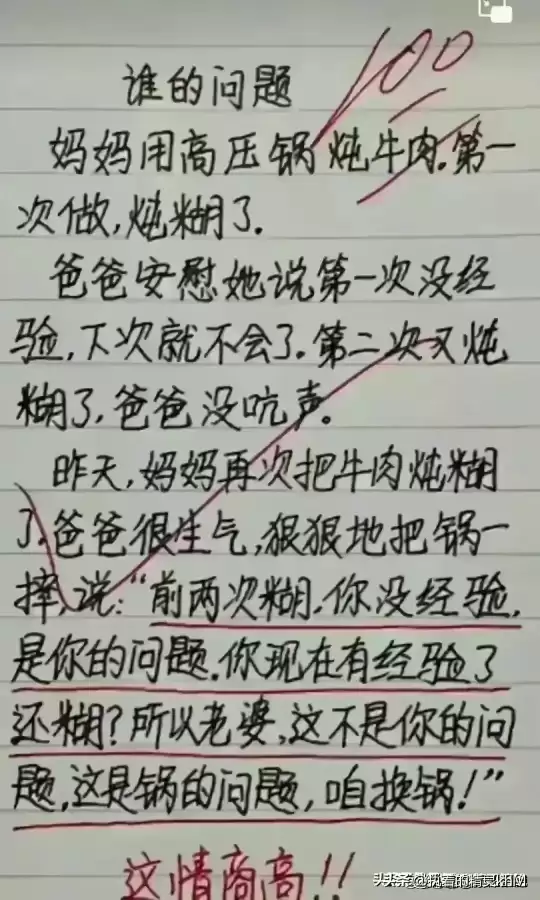 100
谁的问题
妈妈用高压锅炖牛肉.第一
次做,炖糊了.
爸爸安慰她说第一次没经
验,下次就不会了.第二次又炖
糊了,爸爸没吭声。
昨天,妈妈再次把牛肉炖糊
了.爸爸很生气,狠狠地把锅一
摔,说:“前两次糊.你没经验.
是你的问题.你现在有经验了
还糊?所以老婆,这不是你的问
题,这是锅的问题,咱换锅!”
这情商高!!
头条